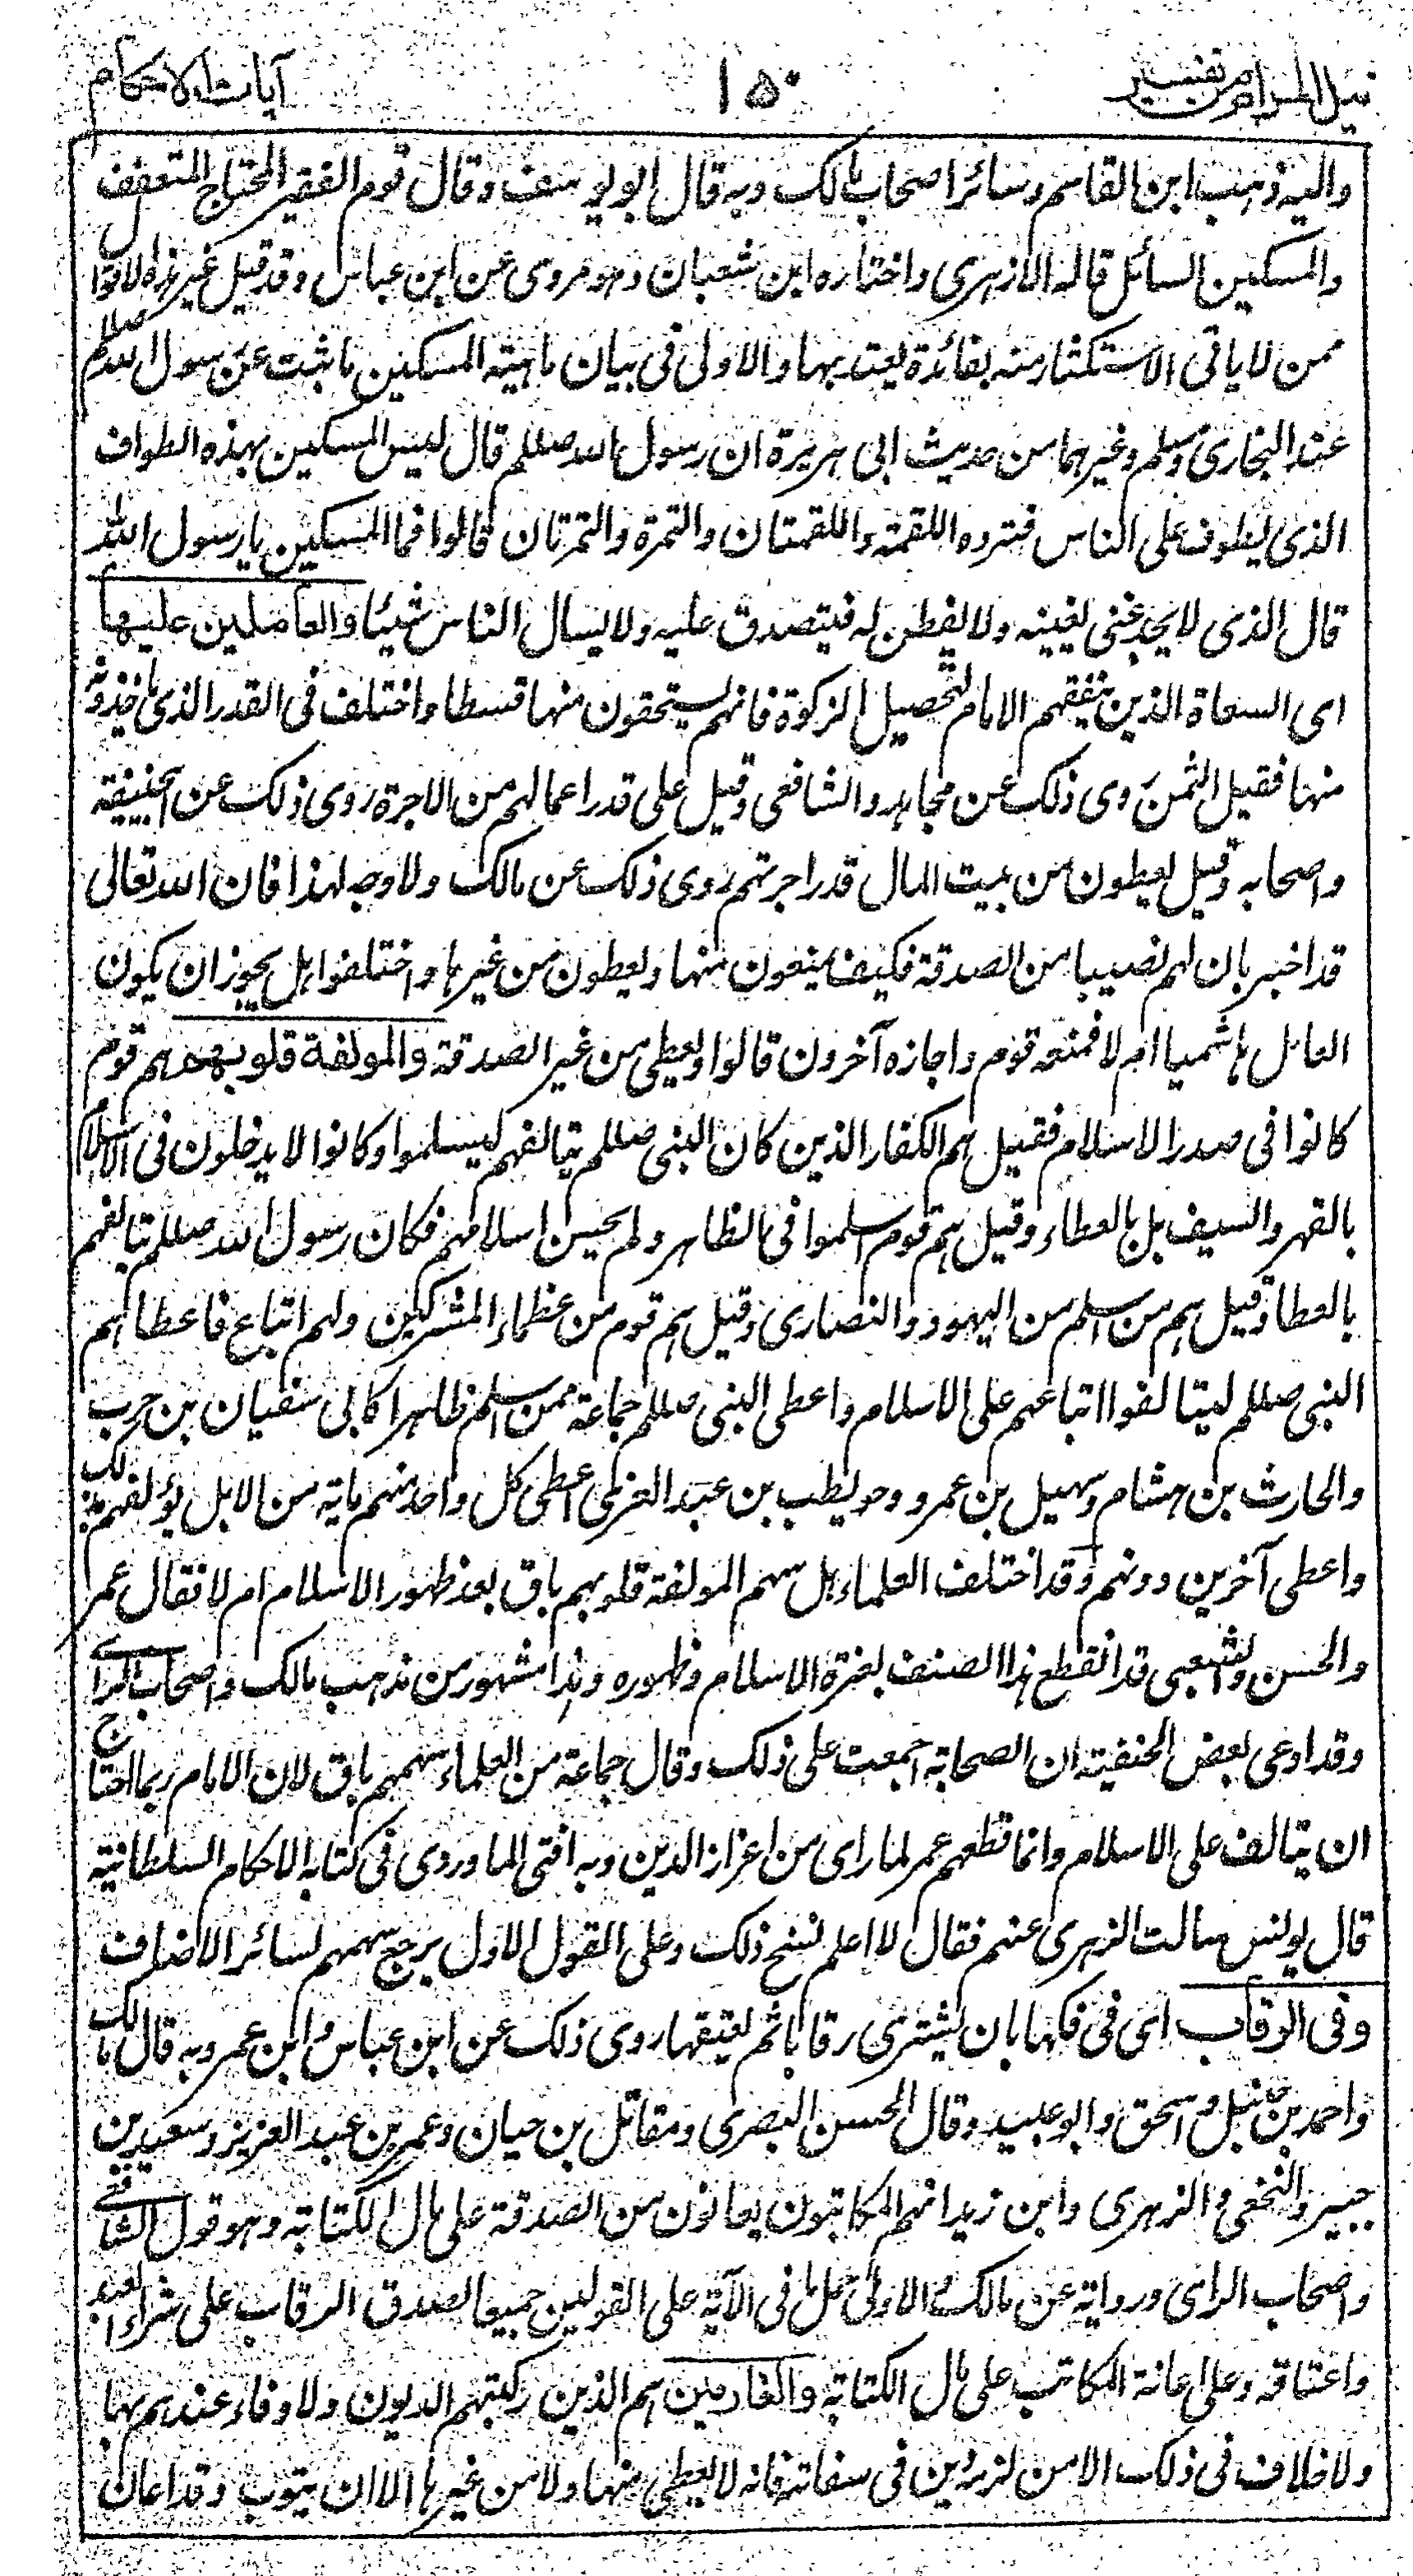 نيل المرام من تفسير ١٥٠ آيات الاحكام
واليه ذهب ابن القاسم وسائر اصحاب مالك وبه قال ابو يوسف وقال قوم الفقير المحتاج المتعفف
والمسكين السائل قاله الازهرى واختاره ابن شعبان وهو مروى عن ابن عباس وقد قيل غير هذه الاقوال
ممن لا ياتى الاستكثار منه بفائدة يعتد بها والاولى فى بيان ماهية المسكين ما ثبت عن رسول الله صللم
عند البخارى ومسلم وغيرهما من حديث ابى هريرة ان رسول الله صللم قال ليس المسكين بهذه الطواف
الذى يطوف على الناس فترده اللقمة واللقمتان والتمرة والتمرتان قالوا فما المسكين يا رسول الله
قال الذى لا يجد غنى يغنيه ولا يفطن له فيتصدق عليه ولا يسال الناس شيئا والعاملين عليها
اى السعاة الذين يبعثهم الامام لتحصيل الزكوة فانهم يستحقون منها قسطا واختلف فى القدر الذى ياخذونه
منها فقيل الثمن روى ذلك عن مجاهد والشافعى وقيل على قدر اعمالهم من الاجرة روى ذلك عن ابيحنيفة
واصحابه وقيل يعطون من بيت المال قدر اجرتهم روى ذلك عن مالك ولا وجه لهذا فان الله تعالى
قد اخبر بان لهم نصيبا من الصدقة فكيف يمنعون منها ويعطون من غيرها واختلفوا هل يجوز ان يكون
العامل هاشميا ام لا فمنعه قوم واجازه آخرون قالوا ويعطى من غير الصدقة والمولفة قلوبهم هم قوم
كانوا فى صدر الاسلام فقيل هم الكفار الذين كان النبى صللم يتالفهم ليسلموا وكانوا لا يدخلون فى الاسلام
بالقهر والسيف بل بالعطاء وقيل هم قوم اسلموا فى الظاهر ولم يحسن اسلامهم فكان رسول الله صللم يتالفهم
بالعطا وقيل هم من اسلم من اليهود والنصارى وقيل هم قوم من عظماء المشركين ولهم اتباع فاعطاهم
النبى صللم ليتالفوا اتباعهم على الاسلام واعطى النبى صللم جماعة ممن اسلم ظاهرا كابى سفيان بن حرب
والحارث بن هشام وسهيل بن عمرو وحويطب بن عبد العزى اعطى كل واحد منهم ماية من الابل يؤلفهم بذلك
واعطى آخرين دونهم وقد اختلف العلماء هل سهم المولفة قلوبهم باق بعد ظهور الاسلام ام لا فقال عمر
والحسن والشعبى قد انقطع هذا الصنف بعزة الاسلام وظهوره وهذا مشهور من مذهب مالك واصحاب الراى
وقد ادعى بعض الحنفية ان الصحابة اجمعت على ذلك وقال جماعة من العلماء سهمهم باق لان الامام ربما احتاج
ان يتالف على الاسلام وانما قطعهم عمر لما راى من اعزاز الدين وبه افتى الماوردى فى كتابه الاحكام السلطانية
قال يونس سالت الزهرى عنهم فقال لا اعلم نسخ ذلك وعلى القول الاول يرجع سهمهم لسائر الاصناف
وفى الرقاب اى فى فكها بان يشترى رقابا ثم يعتقها روى ذلك عن ابن عباس وابن عمر وبه قال مالك
واحمد بن حنبل واسحق وابو عبيد وقال الحسن البصرى ومقاتل بن حيان وعمر بن عبد العزيز وسعيد بن
جبير والنخعى والزهرى وابن زيد انهم المكاتبون يعانون من الصدقة على مال الكتابة وهو قول الشافعى
واصحاب الراى ورواية عن مالك والاولى حمل ما فى الآية على القولين جميعا لصدق الرقاب على شراء العبد
واعتاقه وعلى اعانة المكاتب على مال الكتابة والغارمين هم الذين ركبتهم الديون ولا وفاء عندهم بها
ولا خلاف فى ذلك الا من لزمه دين فى سفاهة فانه لا يعطى منها ولا من غيرها الا ان يتوب وقد اعان